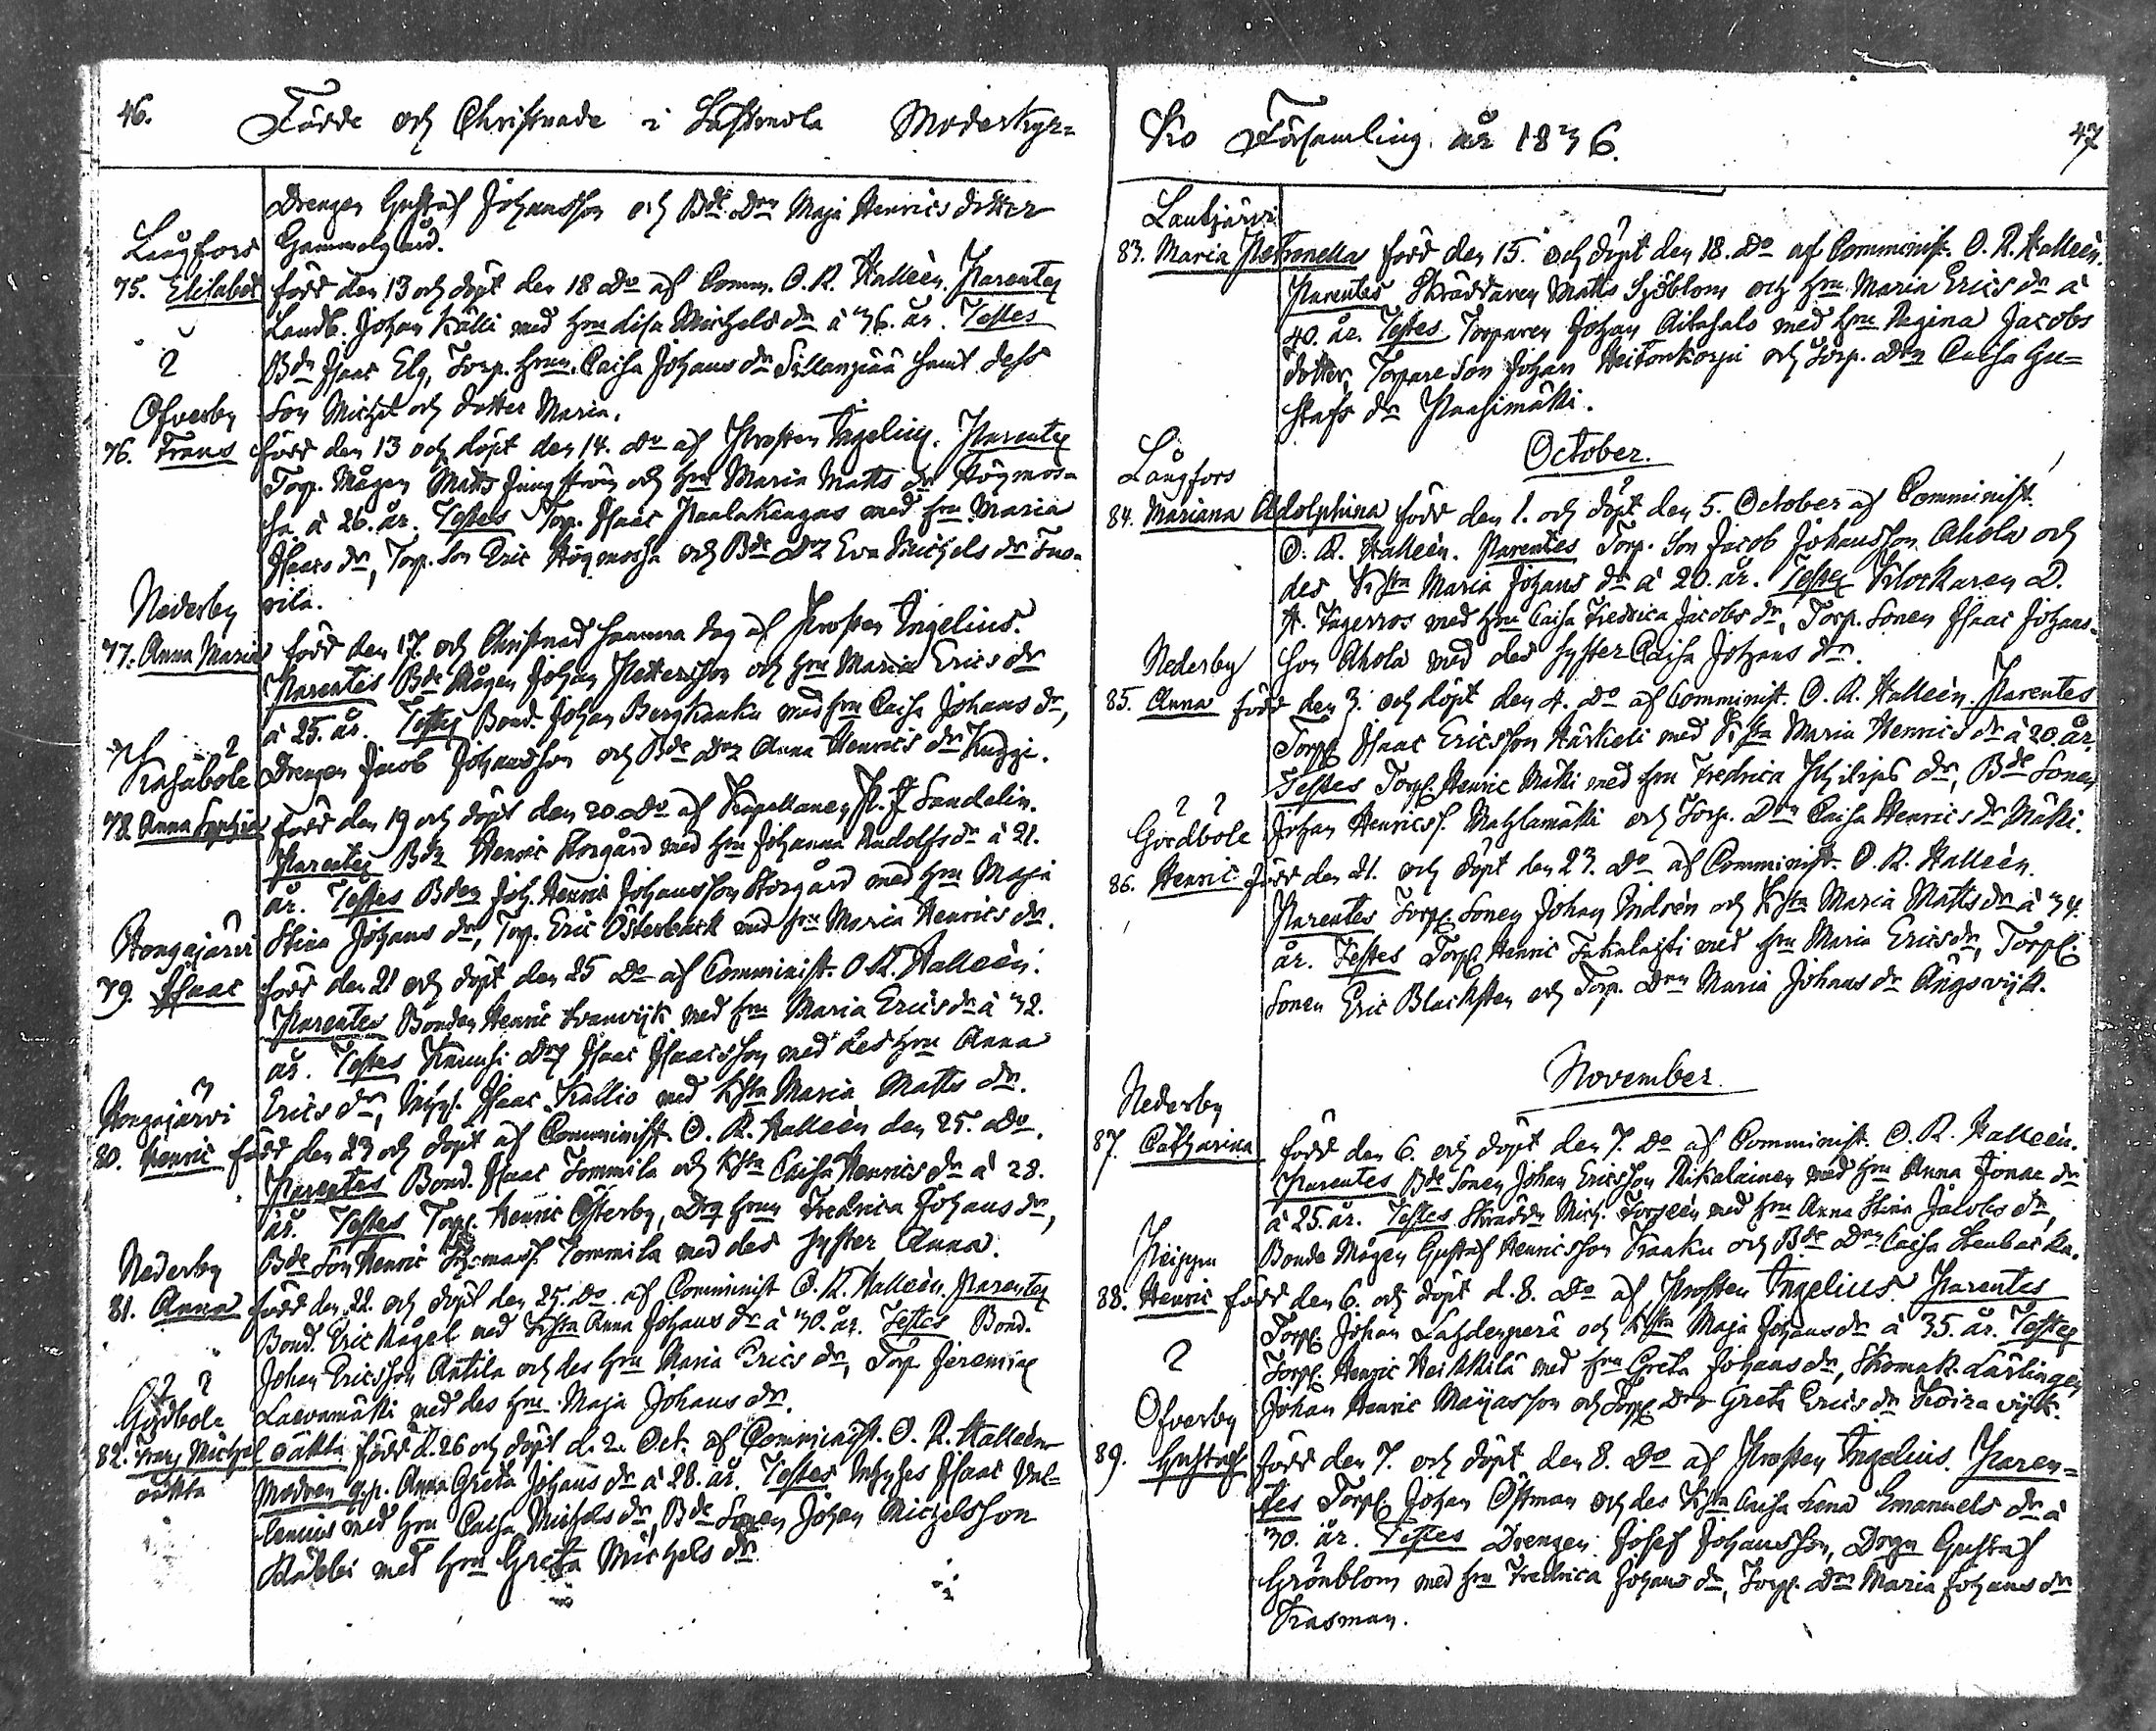 46. Födde och Christnade i Lastmola Moderkyr=
Drengen Gustaf Johansson och Bde Drn Maja Henrics dotter
Långfors Gammelgård.
75. Elisabet född den 13 och döpt den 18 do af Comm. O. R. Halleèn. Parentes
Landb. Johan Källi med Hru Lisa Michels dr à 36. år. Testes
Bdn Isaac Elg, Torp. Hrun Caisa Johans dr Sillanpää samt dess
Ofverby Son Michel och dotter Maria.
76. Frans född den 13 och döpt den 14. do af Prosten Ingelius. Parentes
Torp. Mågen Matts Ljungström och Hru Maria Matts dr Högmos=
sa à 26. år. Testes Torp. Isaac Paalakangas med hru Maria
Isaacs dr, Torp. Son Eric Högmossa och Bde Dr Eva Michels dr
Nederby
77. Anna Maria född den 17. och Christnad samma dag af Prosten Ingelius.
Parentes Bde Mågen Johan Pettersson och Hru Maria Erics dr
à 25. år. Testes Bond. Johan Bergkauka med hru Caisa Johans dr,
Kasaböle Drengen Jacob Johansson och Bde Dr Anna Henrics dr Kuggi.
78. Anna Sophia född den 19 och döpt den 20 do af Kapellanen P. J. Sandelin.
Parentes Bdn Henric Storgård med Hru Johanna Rudolfs dr à 21.
år. Testes Bden Joh. Henric Johansson Storgård med Hru Maja
Stina Johans dr, Torp. Eric Österback med hru Maria Henrics dr.
Hongajärvi
79. Isaac född den 21 och döpt den 25 do af Comminist. O. R. Halleèn.
Parentes Bonden Henric Svanvijk med hru Maria Erics dr à 32.
år. Testes Isaac Isaacsson med des Hru Anna
Erics dr, Isaac Kallio med Hsta Maria Matts dr.
Hongajärvi
80. Henric född den 23 och döpt af Comminist. O. R. Halleèn den 25. do.
Parentes Bond. Isaac Tommila och Hsta Caisa Henrics dr à 28.
år. Testes Torp. Henric Österby, Drg hrun Fredrica Johans dr,
Bde Son Henric Thomass. Tommila med des syster Anna.
Nederby
81. Anna född den 22. och döpt den 25. do. af Comminist. O. R. Halleèn. Parentes
Bond. Eric Någel med Hsta Anna Johans dr à 30. år. Testes Bond.
Johan Ericsson Antila och des Hru Maria Erics dr, Torp. Jeremias
Gödböle Laevamäki med des Hru Maja Johans dr.
82. Frans Michel oäkta född d. 26 och döpt d. 2. Oct. af Comminist. O. R. Halleèn
oäkta Modren Anna Greta Johans dr à 28. år. Testes Isaac Val=
lenius med Hru Caisa Michels dr, Bde Sonen Johan Michelsson
med Hru Greta Michels dr
ko Församling år 1836. 47
Lautjärvi
83. Maria Petronella född den 15. och döpt den 18. do af Comminist. O. R. Halleèn.
Parentes Skräddaren Matts Sjöblom och hru Maria Erics dr à
40. år. Testes Torparen Johan Aitasalo med hru Regina Jacobs
dotter, Torpare Son Johan Heitonkorpi och Torp. Drn Caisa Gu=
stafs dr Paasimäki.
October.
Långfors
84. Mariana Adolphina född den 1. och döpt den 5. October af Comminist.
O. R. Halleèn. Parentes Torp. Son Jacob Johansson Ahola och
des Hsta Maria Johans dr à 20. år. Testes Klockaren D.
H. Fagerros med hru Caisa Fredrica Jacobs dr, Torp. Sonen Isaac Johans=
Nederby son Ahola med des syster Caisa Johans dr.
85. Anna född den 3. och döpt den 4. do af Comminist. O. R. Halleèn. Parentes
Torp. Isaac Ericsson Kärkeli med Hsta Maria Henrics dr à 20. år.
Testes Torp. Henric Mäki med hru Fredrica Philips dr, Bde Sonen
Gördböle Johan Henricss. Mahlamäki och Torp. Drn Caisa Henrics dr Mäki.
86. Henric född den 21. och döpt den 23. do af Comminist. O. R. Halleèn.
Parentes Torp. Sonen Johan Indrèn och Hsta Maria Matts dr à 34.
år. Testes Torp. Henric Takalahti med hru Maria Erics dr, Torp.
Sonen Eric Blacksten och Torp. Drn Maria Johans dr Ängsvijk.
November.
Nederby
87. Catharina född den 6. och döpt den 7. do af Comminist. O. R. Halleèn.
Parentes Bde Sonen Johan Ericsson Rikalainen med Hru Anna Jonae dr
à 25. år. Testes Skräddn Mich. Forseèn med hru Anna Stina Jacobs dr,
Peippu Bonde Mågen Gustaf Henricsson Kauku och Bde Drn Caisa Stenbacka.
88. Henric född den 6. och döpt d. 8. do af Prosten Ingelius. Parentes
Torp. Johan Lahdenperä och Hsta Maja Johans dr à 35. år. Testes
Torp. Henric Heikkilä med hru Greta Johans dr, Skomak. Lärlingen
Ofverby Johan Henric Mayasson och Torp. Drn Greta Erics dr Koiravijk.
89. Gustaf född den 7. och döpt den 8. do af Prosten Ingelius. Paren=
tes Torp. Johan Östman och des Hsta Caisa Lena Emanuels dr à
30. år. Testes Drengen Josef Johansson, Drgn Gustaf
Grönblom med hru Fredrica Johans dr, Torp. Drn Maria Johans dr
Krasman.